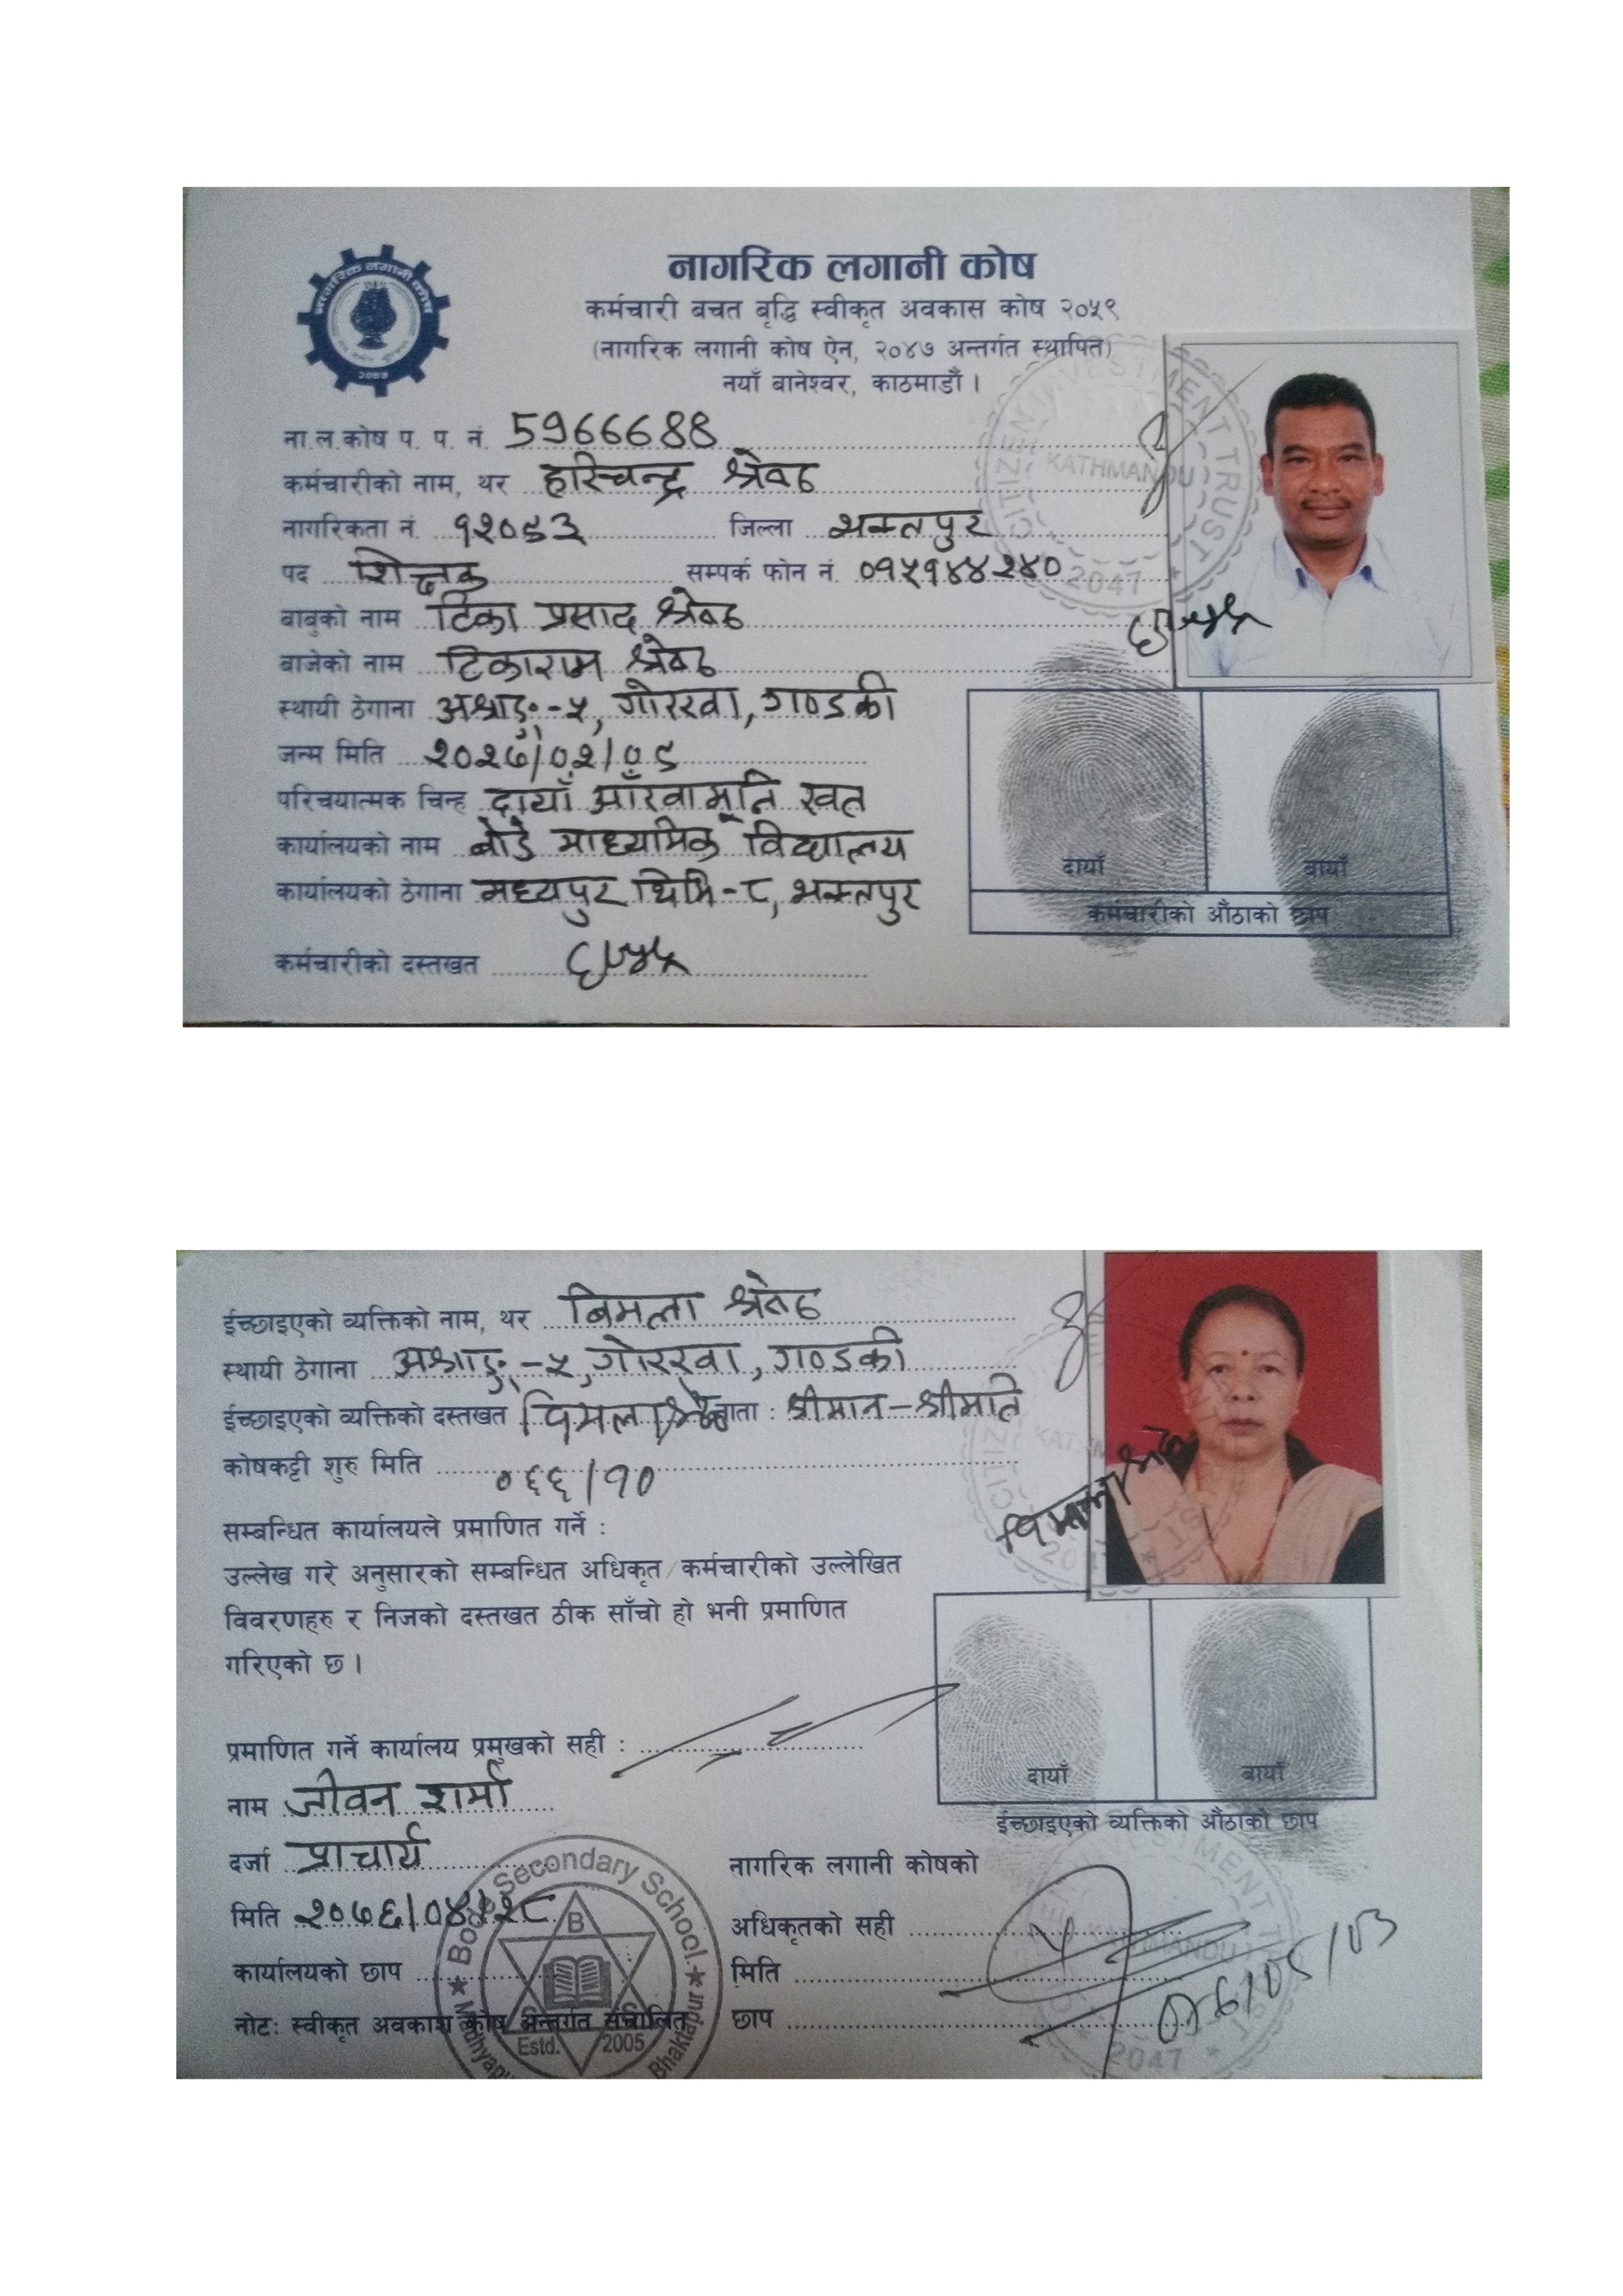 नागरिक लगानी कोष
कर्मचारी बचत बृद्धि स्वीकृत अवकास कोष २०५९
(नागरिक लगानी कोष ऐन, २०४७ अन्तर्गत स्थापित)
नयाँ बानेश्वर, काठमाडौं ।
नागरिक लगानी कोष
२०४७
CITIZEN INVESTMENT TRUST
KATHMANDU
2047
ना.ल.कोष प. प. नं. 5966688
कर्मचारीको नाम, थर हरिचन्द्र श्रेष्ठ
नागरिकता नं. १२०९३ जिल्ला भक्तपुर
पद शिक्षक सम्पर्क फोन नं. ०१५१४४२४०
बाबुको नाम टिका प्रसाद श्रेष्ठ
बाजेको नाम टिकाराम श्रेष्ठ
स्थायी ठेगाना -५, गोरखा, गण्डकी
जन्म मिति २०२७/०२/०९
परिचयात्मक चिन्ह दायाँ आँखामूनि खत
कार्यालयको नाम बोडे माध्यमिक विद्यालय
कार्यालयको ठेगाना मध्यपुर थिमि-८, भक्तपुर
कर्मचारीको दस्तखत
दायाँ बायाँ
कर्मचारीको औंठाको छाप
ईच्छाइएको व्यक्तिको नाम, थर बिमला श्रेष्ठ
स्थायी ठेगाना -५, गोरखा, गण्डकी
ईच्छाइएको व्यक्तिको दस्तखत विमला श्रेष्ठ नाता : श्रीमान-श्रीमति
कोषकट्टी शुरु मिति ०६६/१०
विमला श्रेष्ठ
सम्बन्धित कार्यालयले प्रमाणित गर्ने :
उल्लेख गरे अनुसारको सम्बन्धित अधिकृत/कर्मचारीको उल्लेखित
विवरणहरु र निजको दस्तखत ठीक साँचो हो भनी प्रमाणित
गरिएको छ ।
प्रमाणित गर्ने कार्यालय प्रमुखको सही :
दायाँ बायाँ
ईच्छाइएको व्यक्तिको औंठाको छाप
नाम जीवन शर्मा
दर्जा प्राचार्य
मिति २०७६/०४/२८
कार्यालयको छाप
नोट: स्वीकृत अवकाश कोष अन्तर्गत संचालित
Secondary School
B
Estd. 2005
Bhaktapur
नागरिक लगानी कोषको
अधिकृतको सही
मिति
छाप
2047